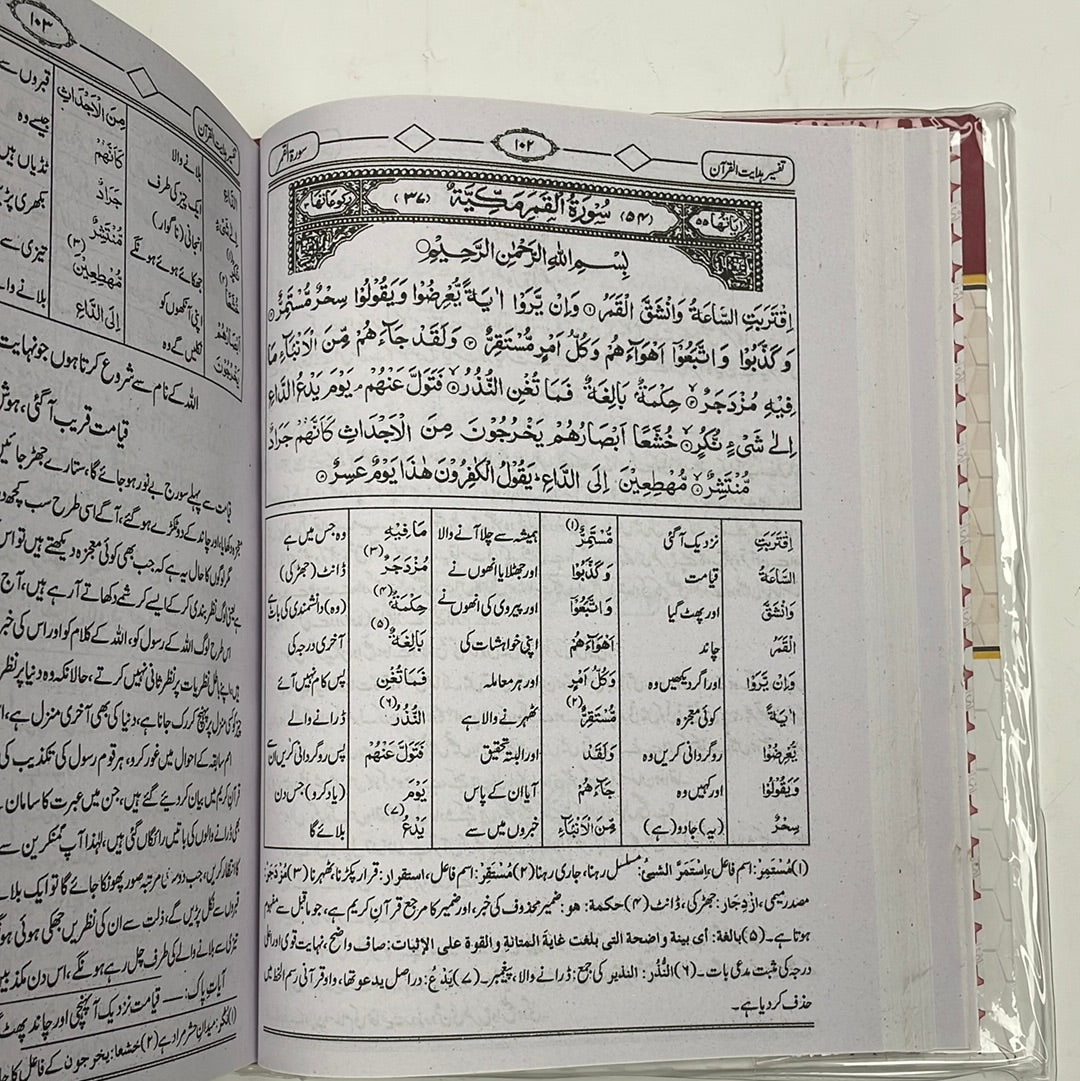 تفسیر ہدایت القرآن
۱۰۲
سورۃ القمر
اٰیاتھا ۵۵
(۵۴) سُوْرَۃُ الْقَمَرِ مَکِّیَّۃٌ (۳۷)
رکوعاتھا ۳
بِسْمِ اللّٰہِ الرَّحْمٰنِ الرَّحِیْمِ
اِقْتَرَبَتِ السَّاعَۃُ وَانْشَقَّ الْقَمَرُ ۱ وَاِنْ یَّرَوْا اٰیَۃً یُّعْرِضُوْا وَیَقُوْلُوْا سِحْرٌ مُّسْتَمِرٌّ ۲
وَکَذَّبُوْا وَاتَّبَعُوْۤا اَھْوَآءَھُمْ وَکُلُّ اَمْرٍ مُّسْتَقِرٌّ ۳ وَلَقَدْ جَآءَھُمْ مِّنَ الْاَنْۢبَآءِ مَا
فِیْہِ مُزْدَجَرٌ ۴ حِکْمَۃٌۢ بَالِغَۃٌ فَمَا تُغْنِ النُّذُرُ ۵ فَتَوَلَّ عَنْھُمْ ۘ یَوْمَ یَدْعُ الدَّاعِ
اِلٰی شَیْءٍ نُّکُرٍ ۶ خُشَّعًا اَبْصَارُھُمْ یَخْرُجُوْنَ مِنَ الْاَجْدَاثِ کَاَنَّھُمْ جَرَادٌ
مُّنْتَشِرٌ ۷ مُّھْطِعِیْنَ اِلَی الدَّاعِ ؕ یَقُوْلُ الْکٰفِرُوْنَ ھٰذَا یَوْمٌ عَسِرٌ ۸
اِقْتَرَبَتِ نزدیک آگئی مُّسْتَمِرٌّ (۱) ہمیشہ سے چلا آنے والا مَا فِیْہِ وہ جس میں ہے
السَّاعَۃُ قیامت وَکَذَّبُوْا اور جھٹلایا انھوں نے مُزْدَجَرٌ (۳) ڈانٹ (جھڑکی)
وَانْشَقَّ اور پھٹ گیا وَاتَّبَعُوْۤا اور پیروی کی انھوں نے حِکْمَۃٌۢ (۴) (وہ) دانشمندی کی بات ہے
الْقَمَرُ چاند اَھْوَآءَھُمْ اپنی خواہشات کی بَالِغَۃٌ (۵) آخری درجہ کی
وَاِنْ یَّرَوْا اور اگر دیکھیں وہ وَکُلُّ اَمْرٍ اور ہر معاملہ فَمَا تُغْنِ پس کام نہیں آئے
اٰیَۃً کوئی معجزہ مُّسْتَقِرٌّ (۲) ٹھہرنے والا ہے النُّذُرُ (۶) ڈرانے والے
یُّعْرِضُوْا روگردانی کریں وہ وَلَقَدْ اور البتہ تحقیق فَتَوَلَّ عَنْھُمْ پس روگردانی کریں ان سے
وَیَقُوْلُوْا اور کہیں وہ جَآءَھُمْ آیا ان کے پاس یَوْمَ (یاد کرو) جس دن
سِحْرٌ (یہ) جادو (ہے) مِّنَ الْاَنْۢبَآءِ خبروں میں سے یَدْعُ (۷) بلائے گا
(۱) مُسْتَمِرّ: اسم فاعل، اسْتَمَرَّ الشیئُ: مسلسل رہنا، جاری رہنا (۲) مُسْتَقِرّ: اسم فاعل، استقرار: قرار پکڑنا، ٹھہرنا (۳) مُزْدَجَر:
مصدر میمی، ازْدِجَار: جھڑکی، ڈانٹ (۴) حکمة: ھو: ضمیر محذوف کی خبر، اور ضمیر کا مرجع قرآنِ کریم ہے، جو ماقبل سے مفہوم
ہوتا ہے۔ (۵) بالغة: أی بینة واضحة التی بلغت غایة المتانة والقوة علی الإثبات: صاف واضح، نہایت قوی اور اعلی
درجہ کی مثبت مدعی بات۔ (۶) النُّذُر: النذیر کی جمع: ڈرانے والا، پیغمبر۔ (۷) یَدْعُ: در اصل یدعو تھا، واو قرآنی رسم الخط میں
حذف کر دیا ہے۔
۱۰۳
تفسیر ہدایت القرآن
الدَّاعِ بلانے والا مِنَ الْاَجْدَاثِ قبروں سے
اِلٰی شَیْءٍ ایک چیز کی طرف کَاَنَّھُمْ جیسے وہ
نُّکُرٍ (۱) انجانی (ناگوار) جَرَادٌ ٹڈیاں ہیں
خُشَّعًا (۲) جھکائے ہوئے ہونگے مُّنْتَشِرٌ بکھری پڑی
اَبْصَارُھُمْ اپنی آنکھوں کو مُّھْطِعِیْنَ (۳) تیزی سے
یَخْرُجُوْنَ نکلیں گے وہ اِلَی الدَّاعِ بلانے والے
اللہ کے نام سے شروع کرتا ہوں جو نہایت
قیامت قریب آگئی، ہوش
قیامت سے پہلے سورج بے نور ہو جائے گا، ستارے جھڑ جائیں
معجزہ دکھایا، اور چاند کے دو ٹکڑے ہو گئے، آگے اسی طرح سب کچھ
مگر لوگوں کا حال یہ ہے کہ جب بھی کوئی معجزہ دیکھتے ہیں تو اس
نظر بندی کر کے ایسے کرشمے دکھاتے آرہے ہیں، آج
اس طرح لوگ اللہ کے رسول کو، اللہ کے کلام کو اور اس کی خبر
باطل نظریات پر نظر ثانی نہیں کرتے، حالانکہ وہ دنیا پر نظر
چیز کسی منزل پر پہنچ کر رک جانا ہے، دنیا کی بھی آخری منزل ہے،
امم سابقہ کے احوال میں غور کرو، ہر قوم رسول کی تکذیب کی
قرآنِ کریم میں بیان کر دیئے گئے ہیں، جن میں عبرت کا سامان
ڈرانے والوں کی باتیں رائگاں گئی ہیں، لہٰذا آپ منکرین سے
کا انتظار کریں، جب دوسری مرتبہ صور پھونکا جائے گا تو ایک بلانے
قبروں سے نکل پڑیں گے، ذلت سے ان کی نظریں جھکی ہوئی ہونگی
تیزی سے بلانے والے کی طرف چل رہے ہونگے، اس دن مکذبین
آیاتِ پاک: — قیامت نزدیک آپہنچی اور چاند پھٹ
(۱) نکر: میدانِ حشر مراد ہے (۲) خشعا: یخرجون کے فاعل کا حال